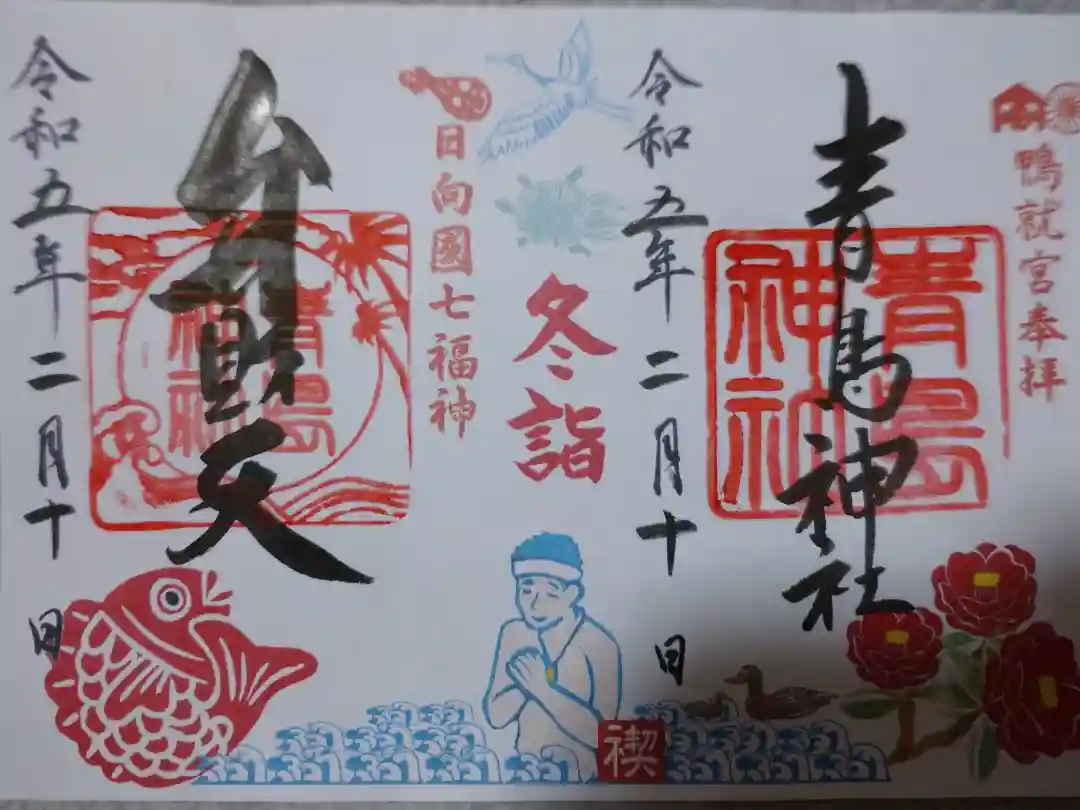 鴨就宮奉拝
青島神社
青島
神社
令和五年二月十日
冬詣
禊
日向國七福神
弁財天
青島
神社
令和五年二月十日